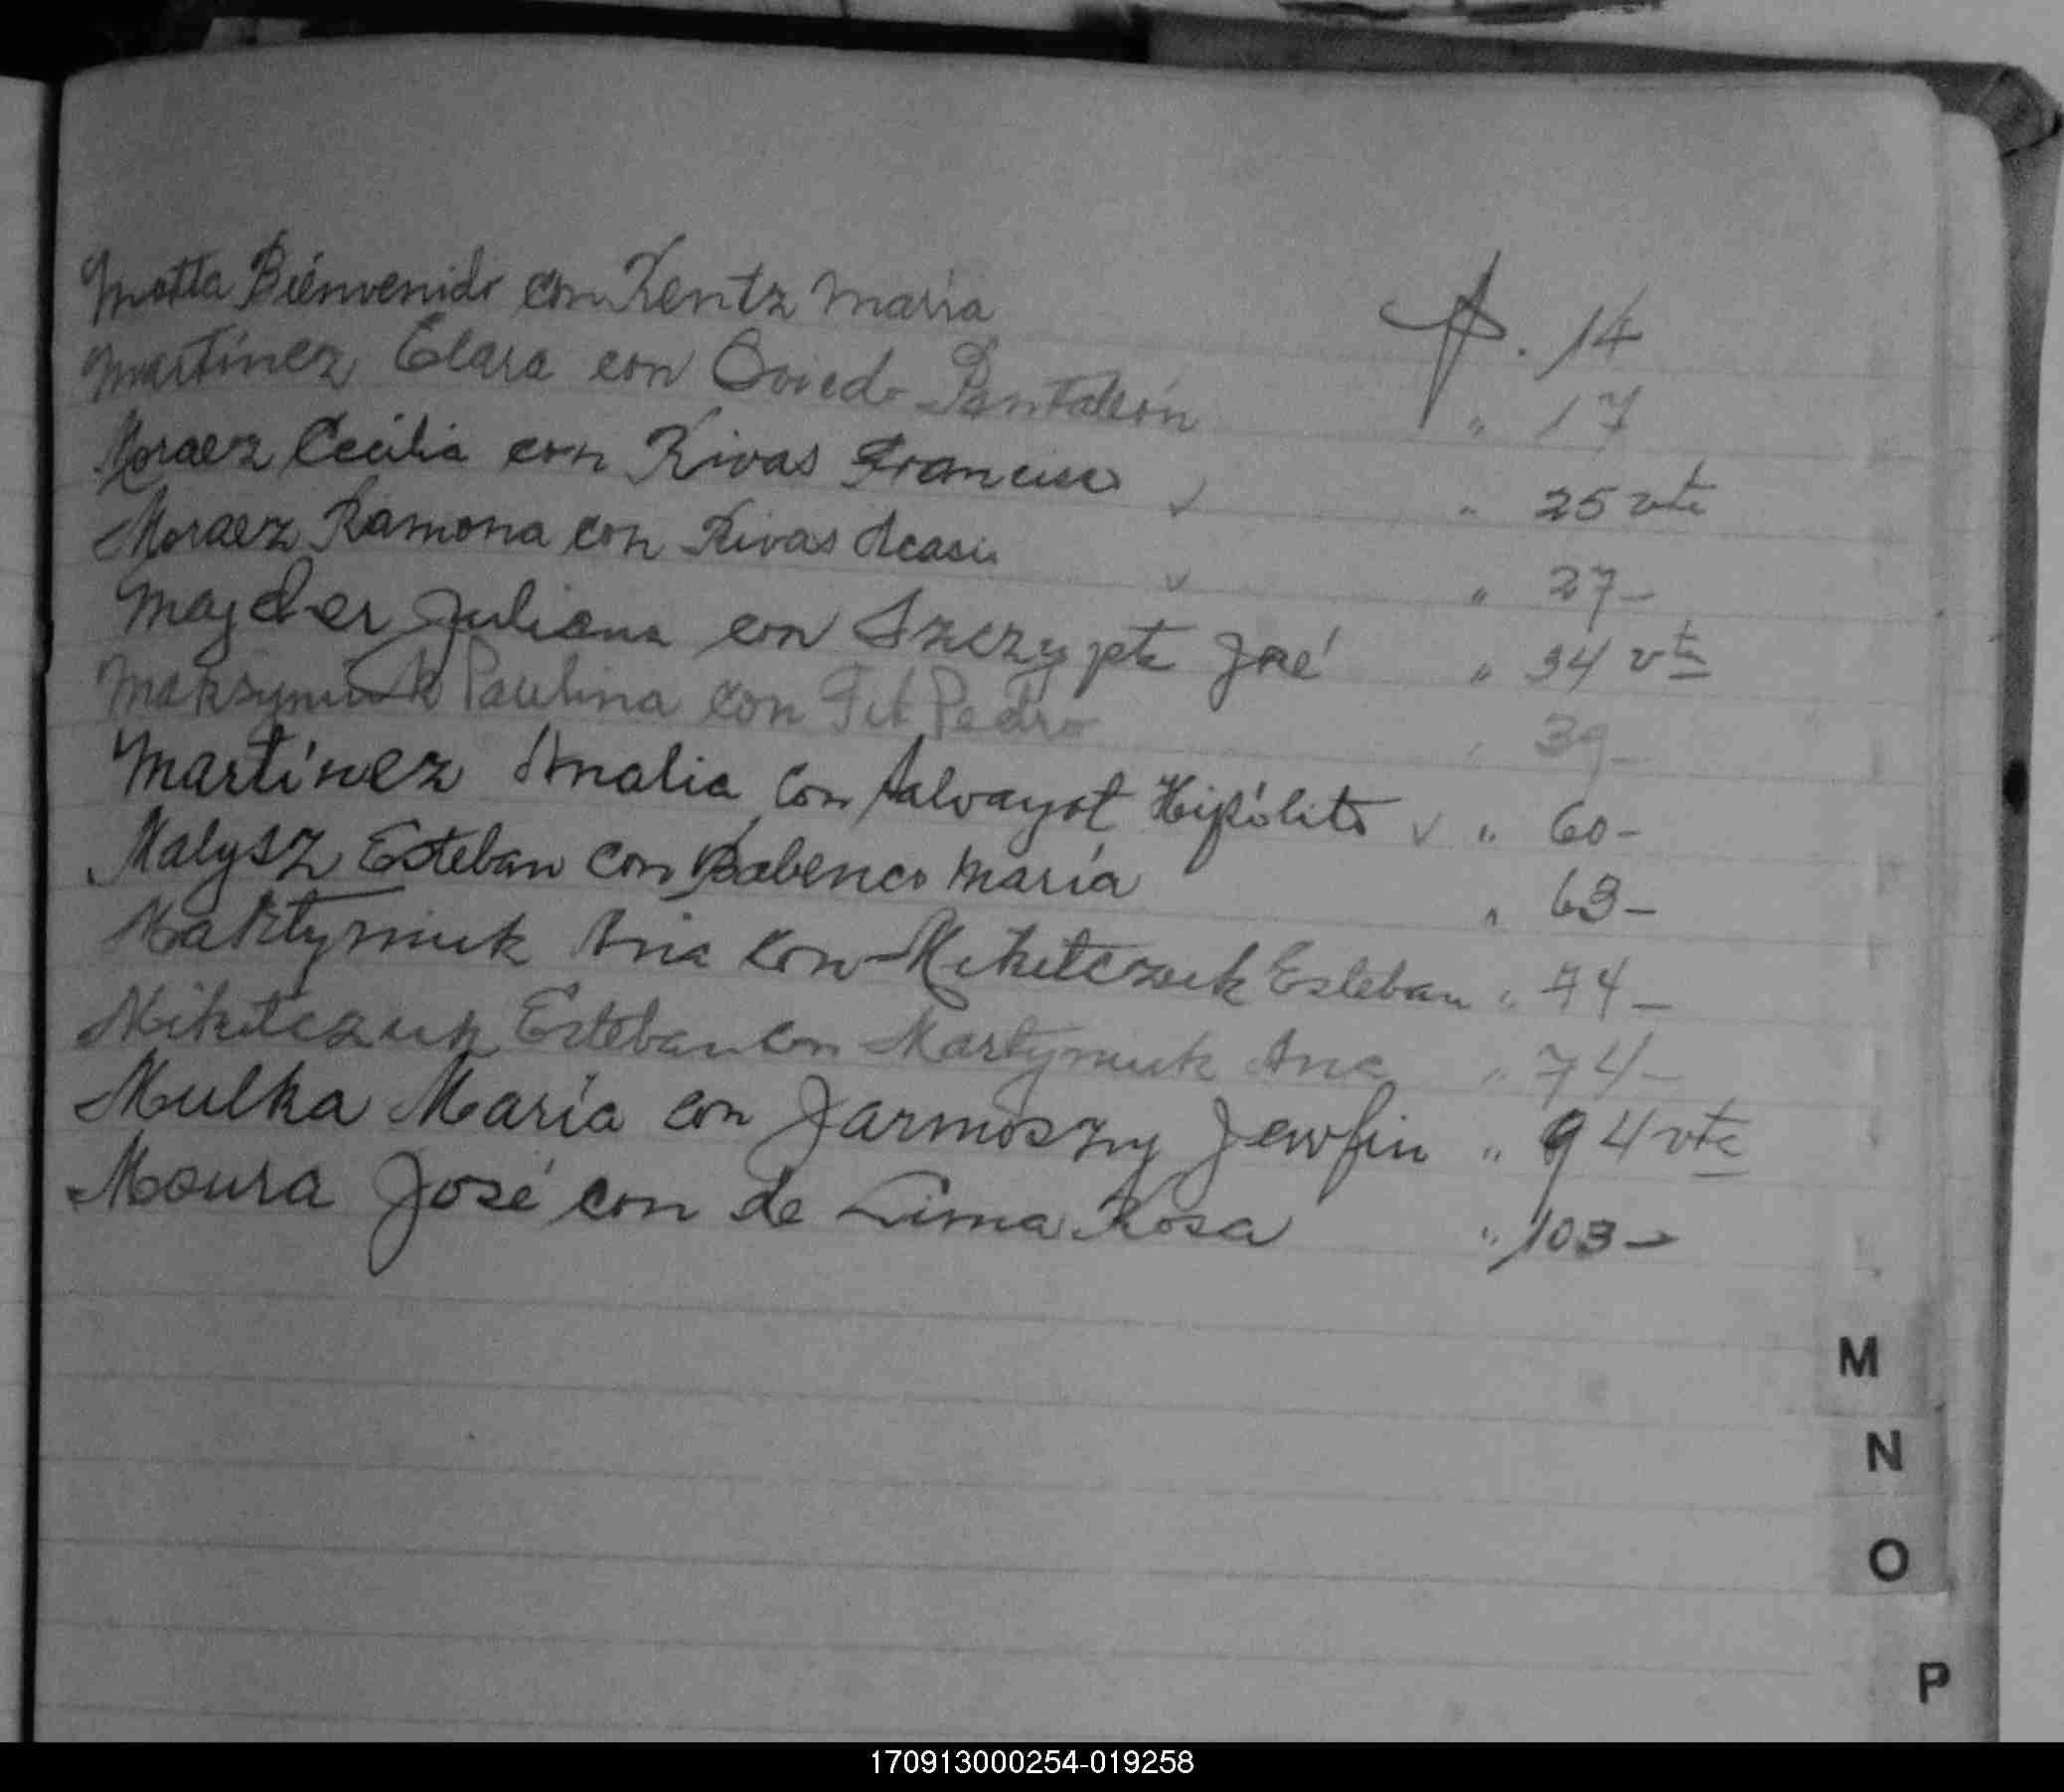 Motta Bienvenido con Rentz María f. 14
Martínez Clara con Oviedo Pantaleón " 17
Moraez Cecilia con Rivas Francisco ✓ " 25 vta
Moraez Ramona con Rivas Acasio ✓ " 27-
Majcher Juliana con Szczypta José " 34 vta
Maksymiuk Paulina con Fit Pedro " 39-
Martínez Analia con Salvayot Hipólito ✓ " 60-
Malysz Esteban con Babenco María " 63-
Martyniuk Ana con Mikitczuk Esteban " 74-
Mikitczuk Esteban con Martyniuk Ana " 74-
Mulka María con Jarmoszy Jewfin " 94 vta
Moura José con de Lima Rosa " 103-
M
N
O
P
170913000254-019258